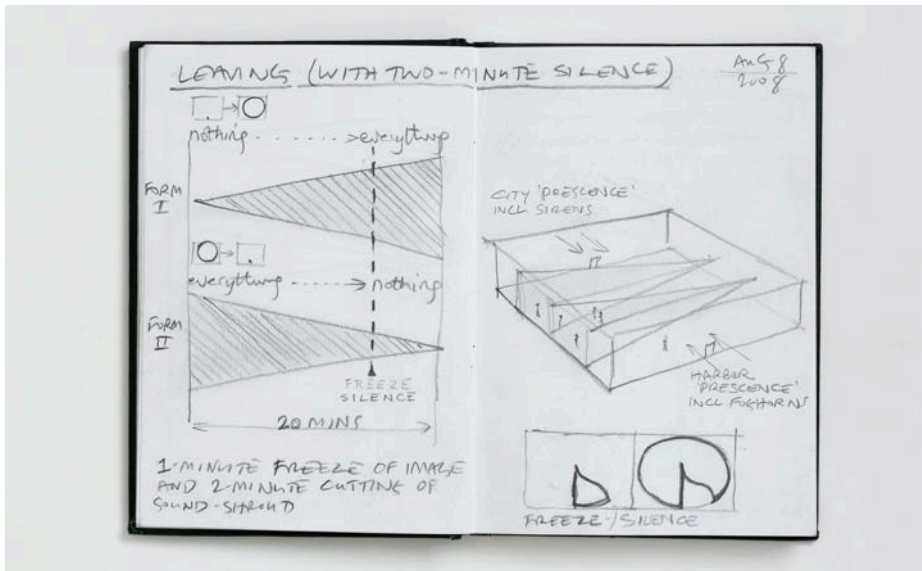 LEAVING (WITH TWO-MINUTE SILENCE)
AUG 8
2008
nothing ........> everything
FORM
I
everything ......> nothing
FORM
II
FREEZE
SILENCE
20 MINS
1-MINUTE FREEZE OF IMAGE
AND 2-MINUTE CUTTING OF
SOUND-SHROUD
CITY 'PRESCENCE'
INCL SIRENS
HARBOR
'PRESCENCE'
INCL FOGHORNS
FREEZE/SILENCE